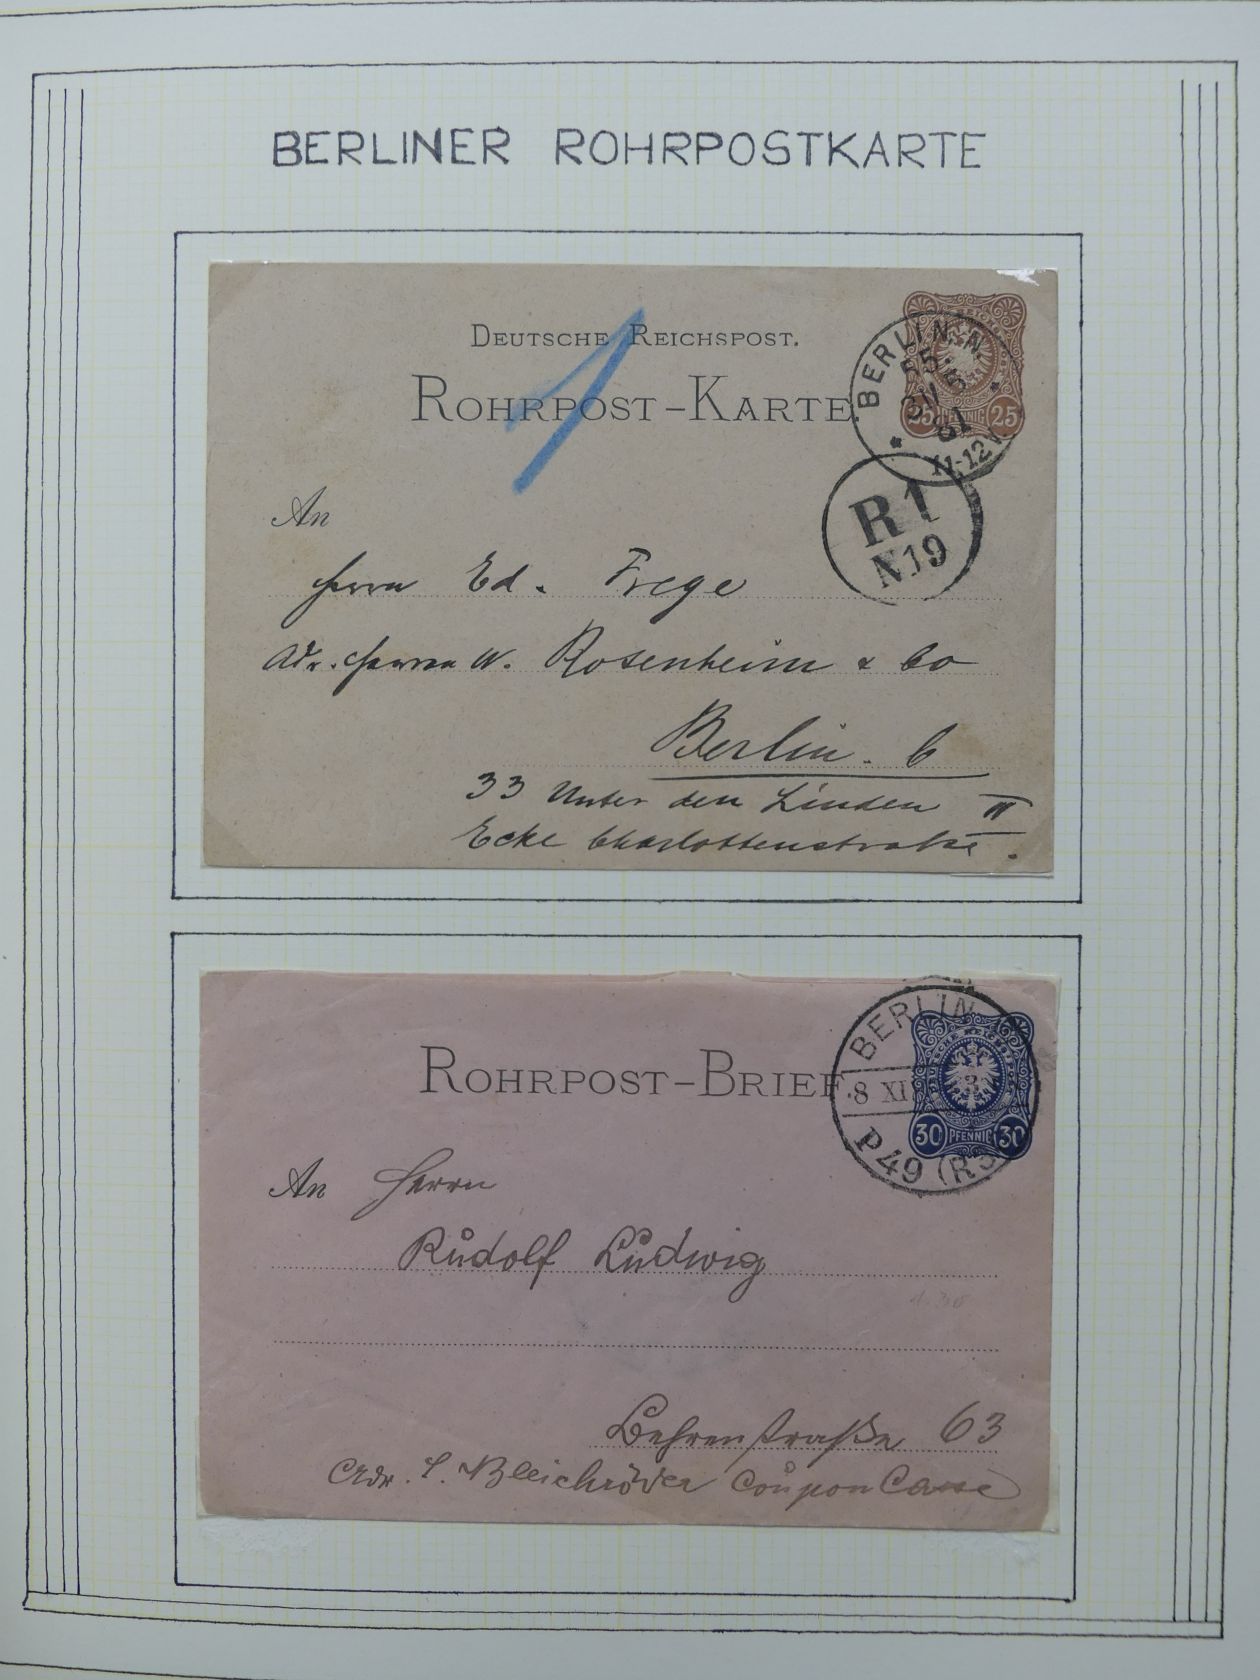 BERLINER ROHRPOSTKARTE
DEUTSCHE REICHSPOST.
ROHRPOST-KARTE
1
BERLIN. N.
55
81
11-12V.
25 PFENNIG 25
R1
N19
An
Herrn Ed. Frege
Adr. Herren W. Rosenheim & Co
Berlin. C
33 Unter den Linden II
Ecke Charlottenstraße.
ROHRPOST-BRIEF
BERLIN
8 XI
P49 (R3
DEUTSCHE REICHSPOST
30 PFENNIG 30
An Herrn
Rudolf Ludwig
Behrenstraße 63
Adr. S. Bleichröder Coupon Casse